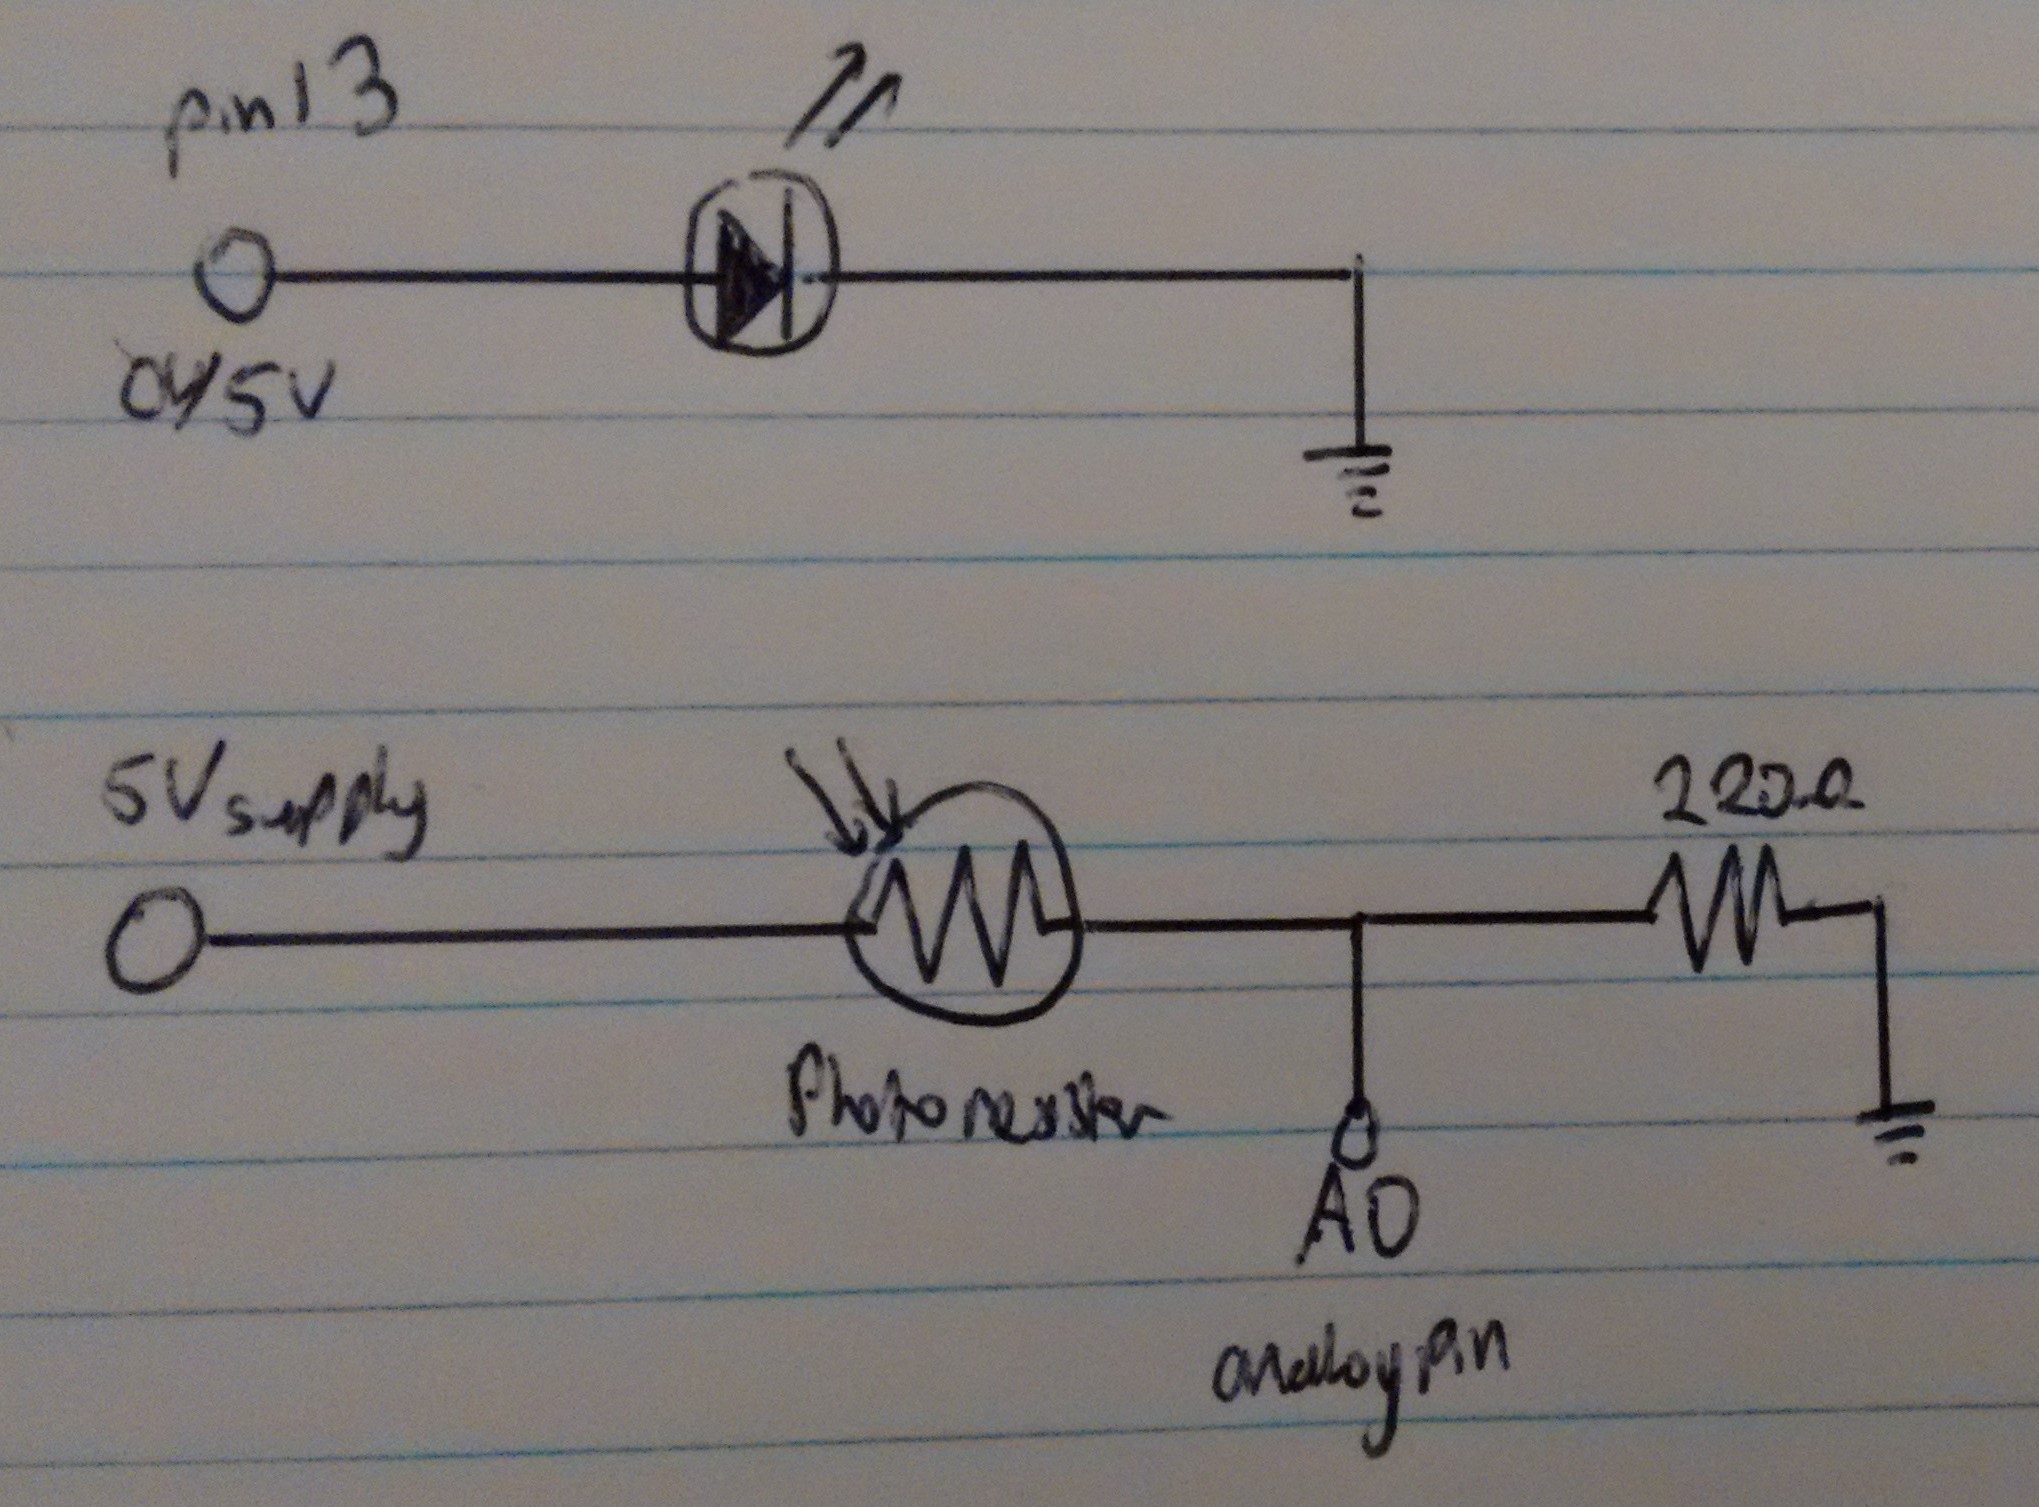 pin13
0V/5V
5V supply
220Ω
Photoresistor
A0
analog pin